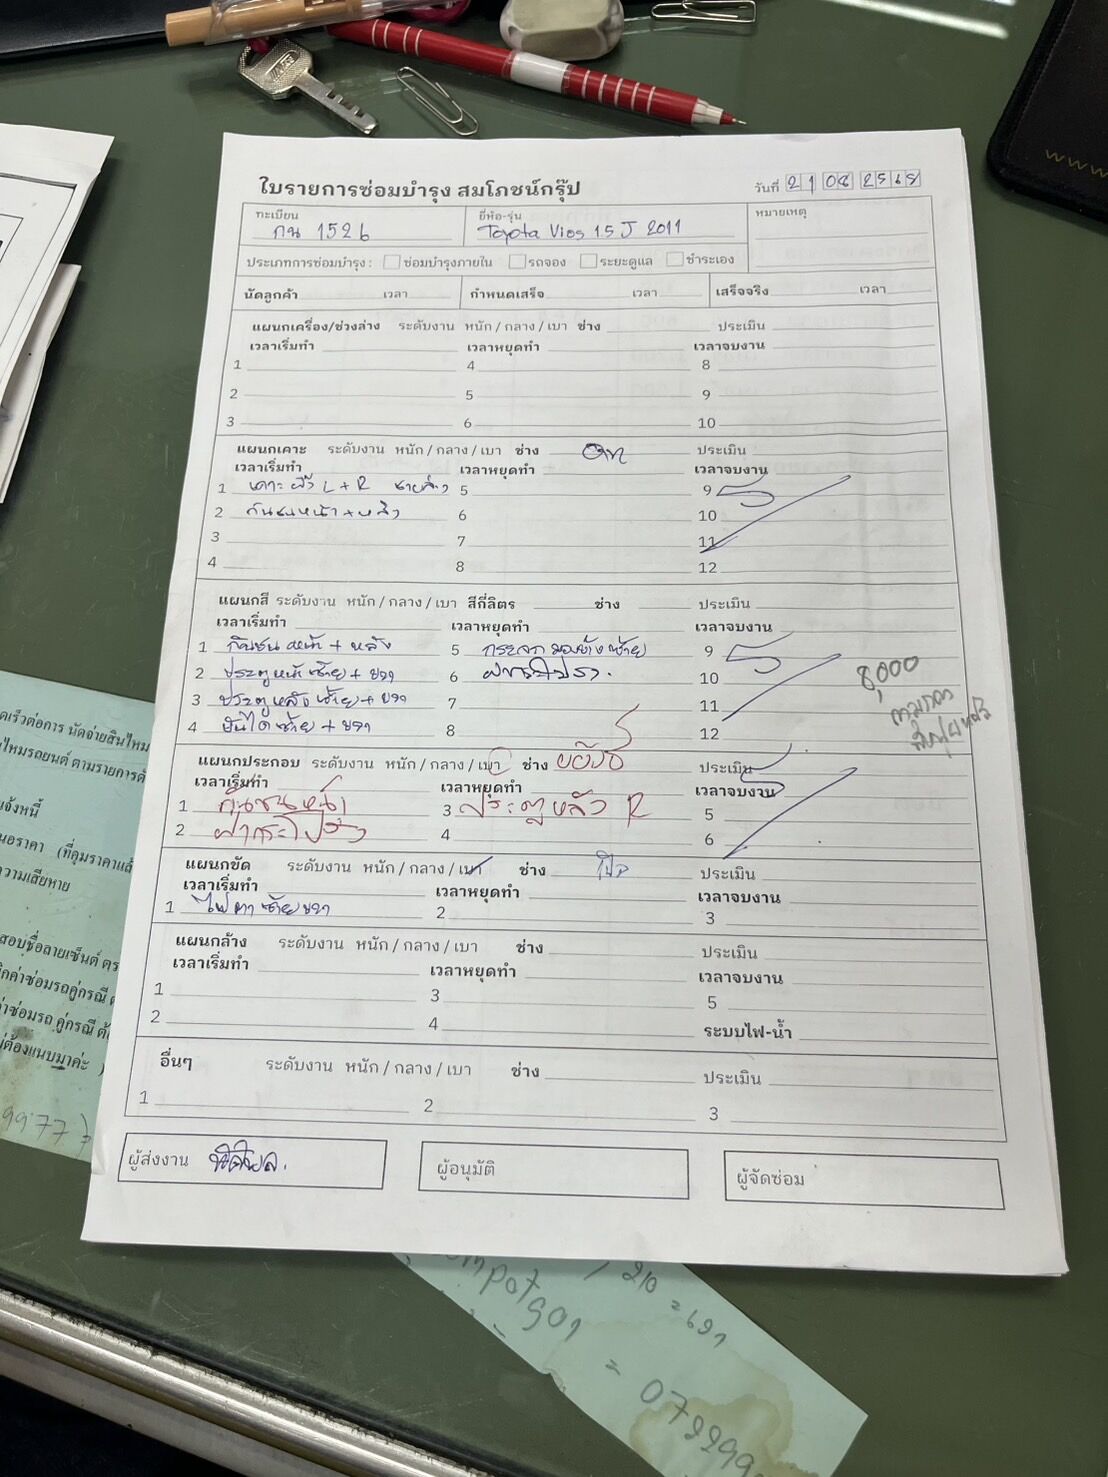 ใบรายการซ่อมบำรุง สมโภชน์กรุ๊ป
วันที่ 21 08 2568
ทะเบียน กน 1526
ยี่ห้อ-รุ่น Toyota Vios 1.5 J 2011
หมายเหตุ
ประเภทการซ่อมบำรุง : ซ่อมบำรุงภายใน รถจอง ระยะดูแล ชำระเอง
นัดลูกค้า เวลา กำหนดเสร็จ เวลา เสร็จจริง เวลา
แผนกเครื่อง/ช่วงล่าง ระดับงาน หนัก / กลาง / เบา ช่าง ประเมิน
เวลาเริ่มทำ เวลาหยุดทำ เวลาจบงาน
1 4 8
2 5 9
3 6 10
แผนกเคาะ ระดับงาน หนัก / กลาง / เบา ช่าง ประเมิน
เวลาเริ่มทำ เวลาหยุดทำ เวลาจบงาน
1 เคาะ L + R 5 9
2 กันชนหน้า + หลัง 6 10
3 7 11
4 8 12
แผนกสี ระดับงาน หนัก / กลาง / เบา สีกี่ลิตร ช่าง ประเมิน
เวลาเริ่มทำ เวลาหยุดทำ เวลาจบงาน
1 กันชน หน้า + หลัง 5 กระจก มองข้าง ซ้าย 9
2 ประตูหน้า ซ้าย + ขวา 6 ฝากระโปรง 10
3 ประตูหลัง ซ้าย + ขวา 7 11
4 บันได ซ้าย + ขวา 8 12
8,000
แผนกประกอบ ระดับงาน หนัก / กลาง / เบา ช่าง ประเมิน
เวลาเริ่มทำ เวลาหยุดทำ เวลาจบงาน
1 กันชนหน้า 3 ประตูหลัง R 5
2 ฝากระโปรง 4 6
แผนกขัด ระดับงาน หนัก / กลาง / เบา ช่าง ประเมิน
เวลาเริ่มทำ เวลาหยุดทำ เวลาจบงาน
1 ไฟตา ซ้าย ขวา 2 3
แผนกล้าง ระดับงาน หนัก / กลาง / เบา ช่าง ประเมิน
เวลาเริ่มทำ เวลาหยุดทำ เวลาจบงาน
1 3 5
2 4 ระบบไฟ-น้ำ
อื่นๆ ระดับงาน หนัก / กลาง / เบา ช่าง ประเมิน
1 2 3
ผู้ส่งงาน
ผู้อนุมัติ
ผู้จัดซ่อม